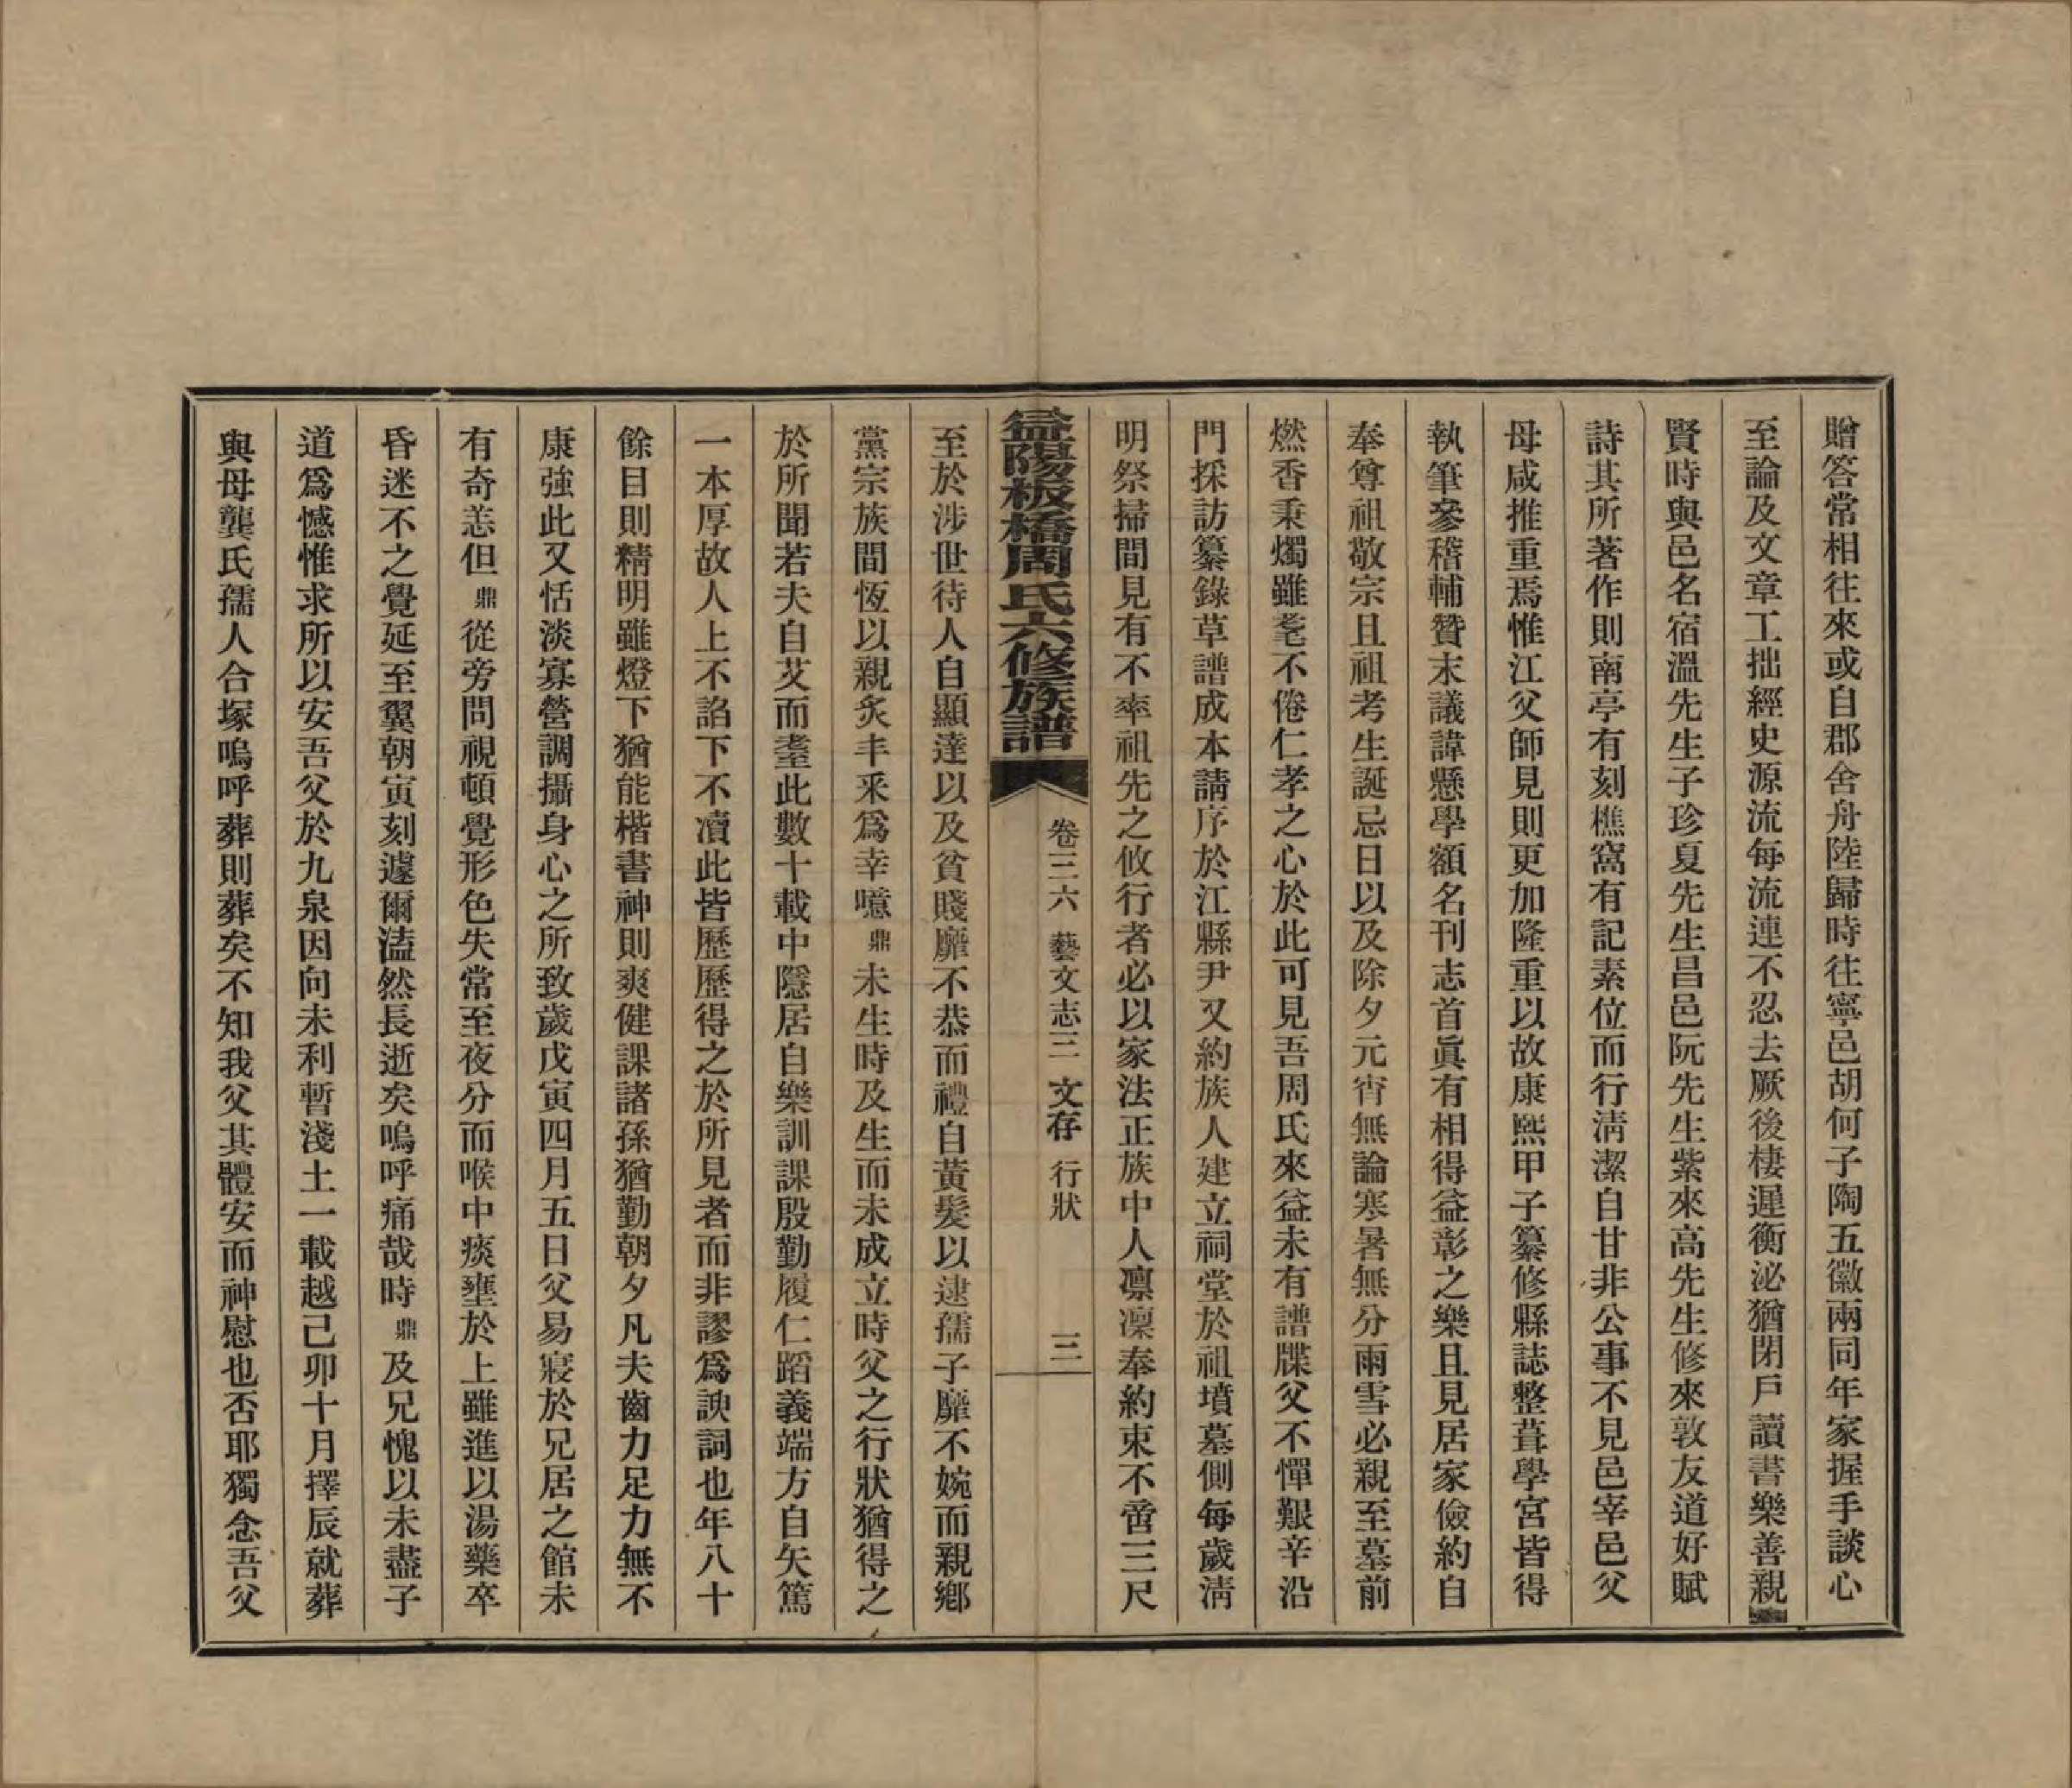 贈答常相往來或自郡舍舟陸歸時往寧邑胡何子陶五徽兩同年家握手談心
至論及文章工拙經史源流每流連不忍去厥後棲遲衡泌猶閉戶讀書樂善親
賢時與邑名宿溫先生子珍夏先生昌邑阮先生紫來高先生修來敦友道好賦
詩其所著作則南亭有刻樵窩有記素位而行清潔自甘非公事不見邑宰邑父
母咸推重焉惟江父師見則更加隆重以故康熙甲子纂修縣誌整葺學宮皆得
執筆參稽輔贊末議諱懸學額名刊志首眞有相得益彰之樂且見居家儉約自
奉尊祖敬宗且祖考生誕忌日以及除夕元宵無論寒暑無分雨雪必親至墓前
燃香秉燭雖耄不倦仁孝之心於此可見吾周氏來益未有譜牒父不憚艱辛沿
門採訪纂錄草譜成本請序於江縣尹又約族人建立祠堂於祖墳墓側每歲淸
明祭掃間見有不率祖先之攸行者必以家法正族中人凛凜奉約束不啻三尺
益陽板橋周氏六修族譜
卷三六 藝文志三 文存 行狀 三
至於涉世待人自顯達以及貧賤靡不恭而禮自黃髮以逮孺子靡不婉而親鄕
黨宗族間恆以親炙丰釆爲幸噫鼎未生時及生而未成立時父之行狀猶得之
於所聞若夫自艾而耋此數十載中隱居自樂訓課殷勤履仁蹈義端方自矢篤
一本厚故人上不諂下不瀆此皆歷歷得之於所見者而非謬爲諛詞也年八十
餘目則精明雖燈下猶能楷書神則爽健課諸孫猶勤朝夕凡夫齒力足力無不
康強此又恬淡寡營調攝身心之所致歲戊寅四月五日父易寢於兄居之館未
有奇恙但鼎從旁問視頓覺形色失常至夜分而喉中痰壅於上雖進以湯藥卒
昏迷不之覺延至翼朝寅刻遽爾溘然長逝矣嗚呼痛哉時鼎及兄愧以未盡子
道爲憾惟求所以安吾父於九泉因向未利暫淺土一載越己卯十月擇辰就葬
與母龔氏孺人合塚嗚呼葬則葬矣不知我父其體安而神慰也否耶獨念吾父